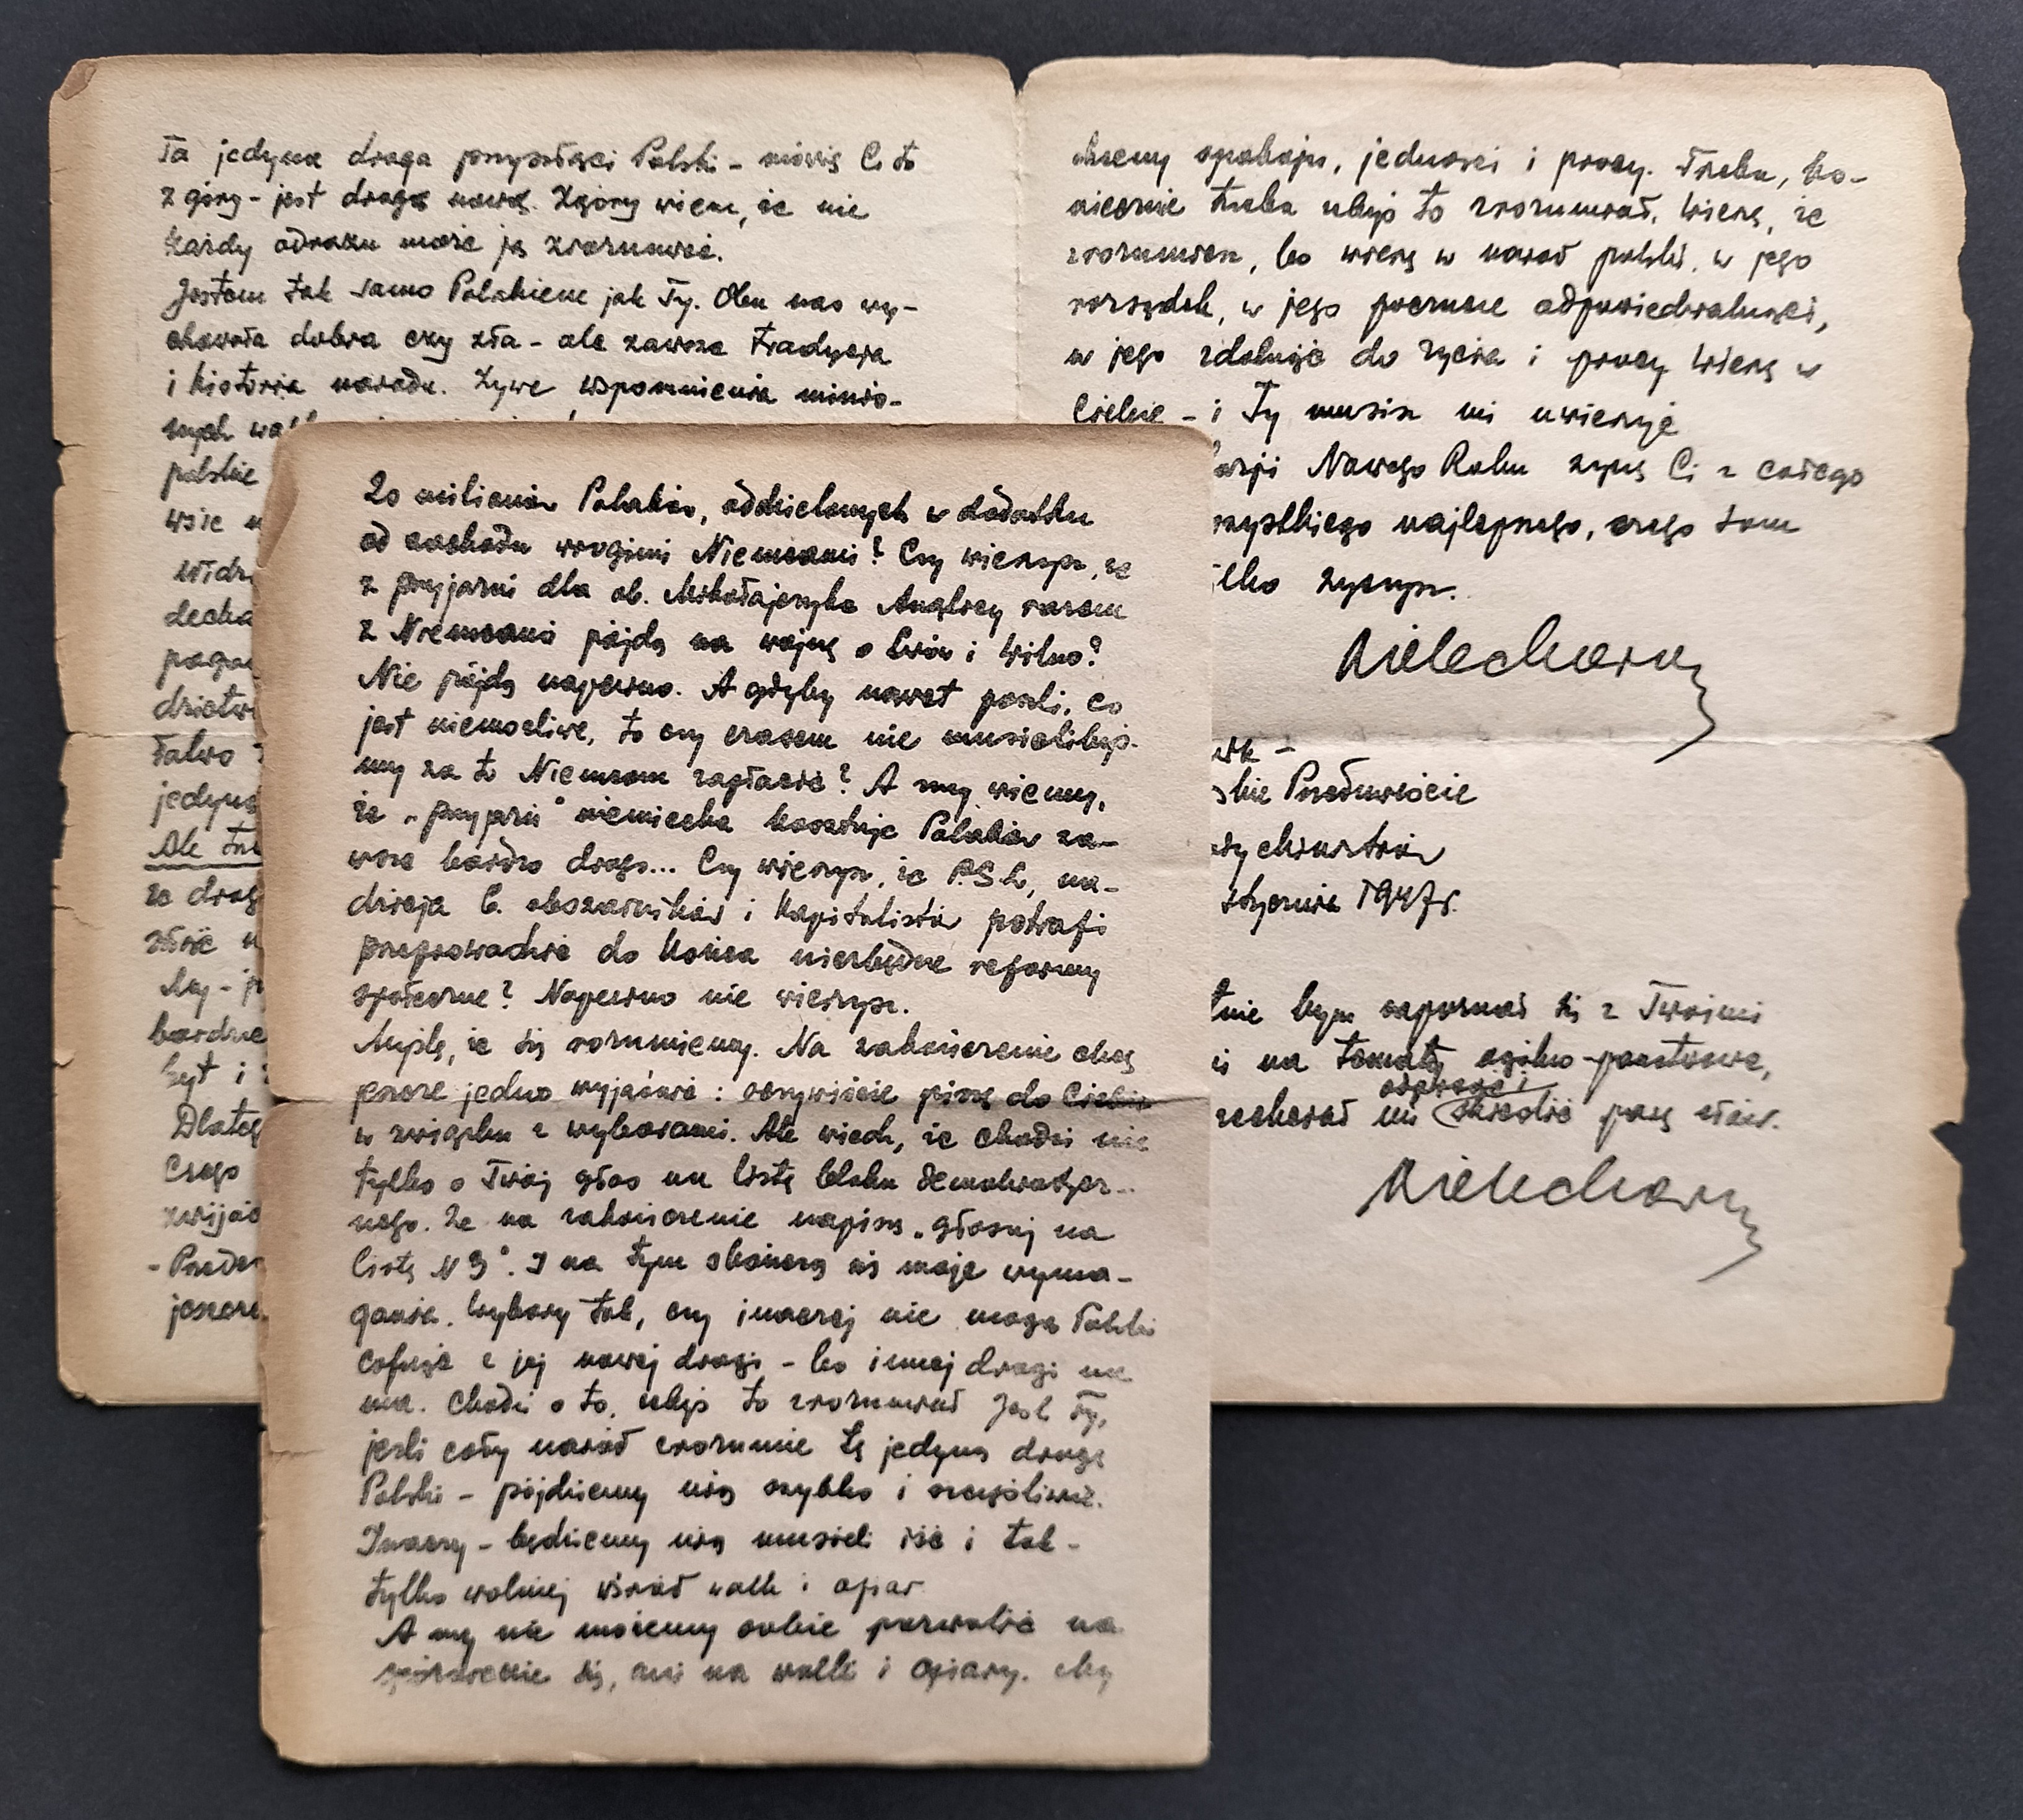 Ta jedyna droga przyszłości Polski – mówię Ci to
z góry – jest drogą nową. Zgóry wiem, że nie
każdy odrazu może ją zrozumieć.
Jestem tak samo Polakiem jak Ty. Obu nas wy-
chowała dobra czy zła – ale zawsze tradycja
i historia narodu. Żywe wspomnienia minio-
nych wal
polskie
wsie
Widz
decha
pogo
dzictw
łatwo
jedyną
Ale
że drog
złość
My –
bardzie
był i
Dlateg
Czego
zwijać
– Przede
jeszcze
20 milionów Polaków, oddzielonych w dodatku
od zachodu wrogimi Niemcami? Czy wierzysz, że
z przyjaźni dla ob. Mikołajczyka Anglicy razem
z Niemcami pójdą na wojnę o Lwów i Wilno?
Nie pójdą napewno. A gdyby nawet poszli, co
jest niemożliwe, to czy czasem nie musielibyś-
my za to Niemcom zapłacić? A my wiemy,
że „przyjaźń" niemiecka kosztuje Polaków za-
wsze bardzo drogo... Czy wierzysz, że P.S.L., na-
dzieja b. obszarników i kapitalistów potrafi
przeprowadzić do końca niezbędne reformy
społeczne? Napewno nie wierzysz.
Myślę, że się rozumiemy. Na zakończenie chcę
jeszcze jedno wyjaśnić: oczywiście piszę do Ciebie
w związku z wyborami. Ale wiedz, że chodzi nie
tylko o Twój głos na listę bloku demokratycz-
nego. Że na zakończenie napiszę „głosuj na
listę N 3". I na tym skończą się moje wyma-
gania. Wybory tak, czy inaczej nie mogą Polski
cofnąć z jej nowej drogi – bo innej drogi nie
ma. Chodzi o to, abyś to zrozumiał. Jeśli Ty,
jeśli cały naród zrozumie tę jedyną drogę
Polski – pójdziemy nią szybko i szczęśliwie.
Inaczej – będziemy nią musieli iść i tak –
tylko wolniej wśród walk i ofiar.
A my nie możemy sobie pozwolić na
spóźnienie się, ani na walki i ofiary. My
chcemy spokoju, jedności i pracy. Trzeba, ko-
niecznie trzeba abyś to zrozumiał. Wierzę, że
zrozumiesz, bo wierzę w naród polski, w jego
rozsądek, w jego poczucie odpowiedzialności,
w jego zdolność do życia i pracy. Wierzę w
Ciebie – i Ty musisz mi uwierzyć
azji Nowego Roku życzę Ci z całego
wszystkiego najlepszego, czego sam
tylko życzysz.
skie Przedmieście
stycznia 1947r.
tnie bym zapoznał się z Twojemi
i na tematy ogólno-państwowe,
odpisać i
zechciał mi skreślić parę słów.